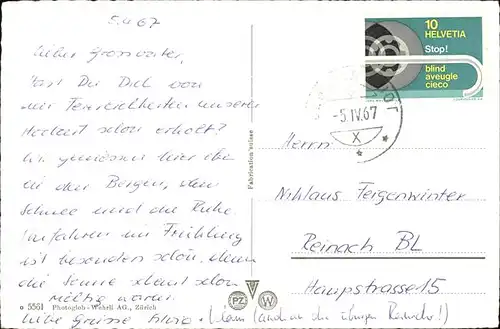 5.4.67
lieber Grossvater,
hast Du Dich von
den Feierlichkeiten unserer
Hochzeit schon erholt?
Wir geniessen hier oben
in den Bergen, den
Schnee und die Ruhe.
Skifahren im Frühling
ist besonders schön, denn
die Sonne scheint schon
richtig warm.
liebe Grüsse (und an die übrigen Reinacher!)
o 5561 Photoglob-Wehrli AG., Zürich
Fabrication suisse
PZ W
10
HELVETIA
Stop!
blind
aveugle
cieco
-5.IV.67
X
Herrn
Niklaus Feigenwinter
Reinach BL
Hauptstrasse 15